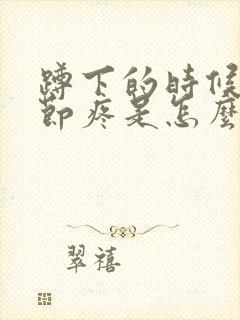 蹲下的時候
節疼是怎麼
翠禧